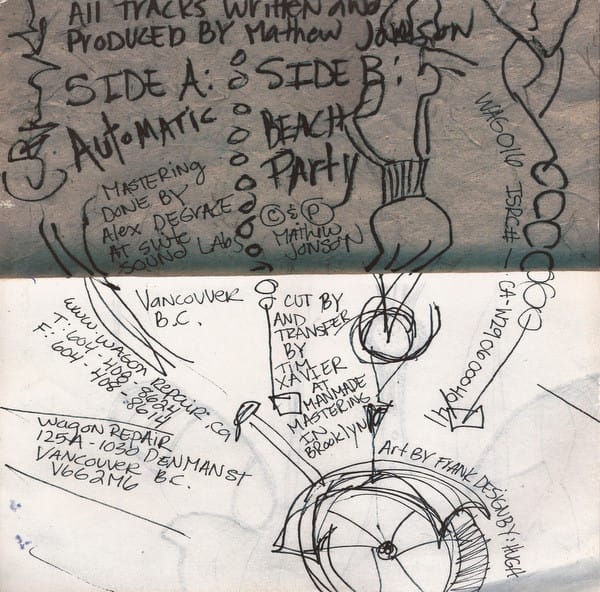 All TRACKS WRITTEN AND
PRODUCED BY Mathew Jonson
SIDE A:
AUTOMATIC
SIDE B:
BEACH
PARTY
MASTERING
DONE BY
Alex DEGRACE
AT SUITE
SOUND LABS
© & ℗
MATHEW
JONSON
WAG016 ISRC# — CA-W29060004
VANCOUVER
B.C.
www.wagon Repair.ca
T: 604-408-8624
F: 604-408-8674
wagon REPAIR
125A-1030 DENMAN ST
VANCOUVER B.C.
V662M6
CUT BY
AND
TRANSFER
BY
TIM
XAVIER
AT
MANMADE
MASTERING
IN
BROOKLYN
Art BY FRANK DESIGN BY: HUGH